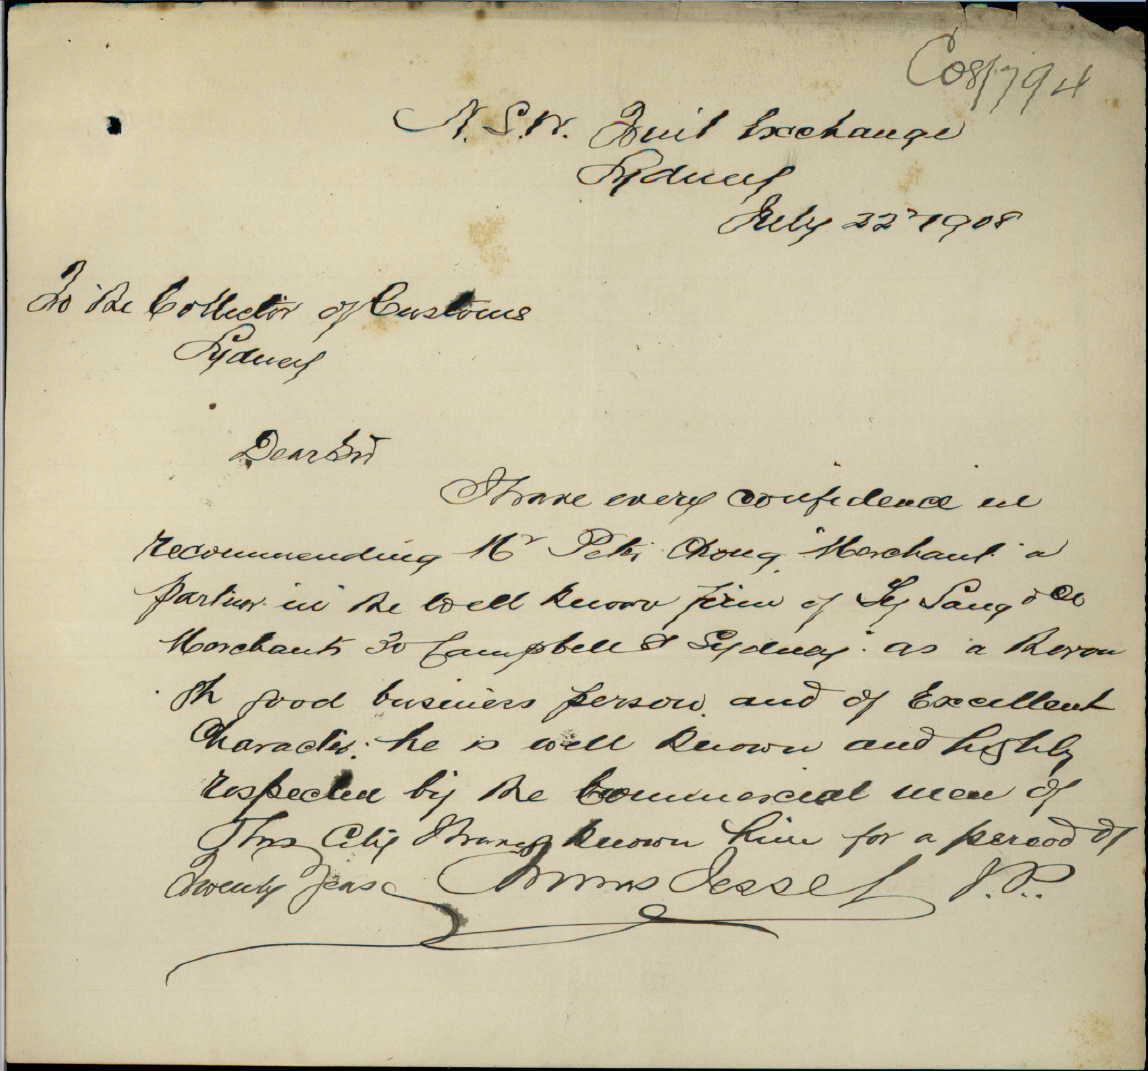 Co8/794
N.S.W. Fruit Exchange
Sydney
July 22 1908
To the Collector of Customs
Sydney
Dear Sir
I have every confidence in
recommending Mr Peter Chong Merchant a
partner in the well known firm of Sang & Co
Merchants 30 Campbell St Sydney as a
good business person and of Excellent
Character. he is well known and highly
respected by the Commercial men of
This City I have known him for a perood of
Twenty Years Jessel J.P.